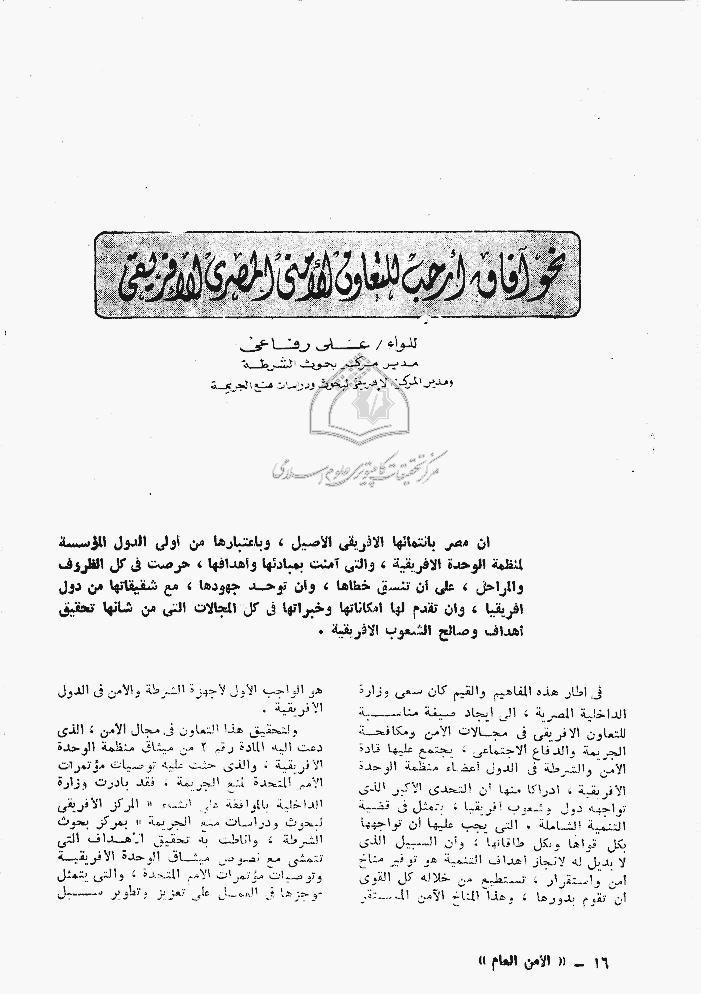 نحو آفاق أرحب للتعاون الأمنى المصرى الافريقى
للواء / على رفاعى
مدير مركز بحوث الشرطة
ومدير المركز الافريقى لبحوث ودراسات منع الجريمة
مرکز تحقیقات کامپیوتری علوم اسلامی
ان مصر بانتمائها الافريقى الأصيل ، وباعتبارها من أولى الدول المؤسسة
لمنظمة الوحدة الافريقية ، والتى آمنت بمبادئها وأهدافها ، حرصت فى كل الظروف
والمراحل ، على أن تنسق خطاها ، وأن توحد جهودها ، مع شقيقاتها من دول
افريقيا ، وان تقدم لها امكاناتها وخبراتها فى كل المجالات التى من شأنها تحقيق
أهداف وصالح الشعوب الافريقية .
فى اطار هذه المفاهيم والقيم كان سعى وزارة
الداخلية المصرية ، الى أيجاد صيغة مناسبة
للتعاون الافريقى فى مجالات الأمن ومكافحة
الجريمة والدفاع الاجتماعى ، يجتمع عليها قادة
الأمن والشرطة فى الدول أعضاء منظمة الوحدة
الافريقية ، ادراكا منها أن التحدى الأكبر الذى
تواجهه دول وشعوب أفريقيا ، يتمثل فى قضية
التنمية الشاملة . التى يجب عليها أن تواجهها
بكل قواها وبكل طاقاتها ، وأن السبيل الذى
لا بديل له لانجاز أهداف التنمية هو توفير مناخ
امن واستقرار ، تستطيع من خلاله كل القوى
ان تقوم بدورها ، وهذا المناخ الآمن المستقر
هو الواجب الأول لأجهزة الشرطة والأمن فى الدول
الافريقية .
ولتحقيق هذا التعاون فى مجال الأمن ، الذى
دعت اليه المادة رقم ٢ من ميثاق منظمة الوحدة
الافريقية ، والذى حثت عليه توصيات مؤتمرات
الأمم المتحدة لمنع الجريمة ، فقد بادرت وزارة
الداخلية بالموافقة على انشاء « المركز الافريقى
لبحوث ودراسات منع الجريمة » بمركز بحوث
الشرطة ، وأناطت به تحقيق الأهداف التى
تتمشى مع نصوص ميثاق الوحدة الافريقية
وتوصيات مؤتمرات الأمم المتحدة ، والتى يتمثل
موجزها فى العمل على تعزيز وتطوير سبل
١٦ ــ « الأمن العام »